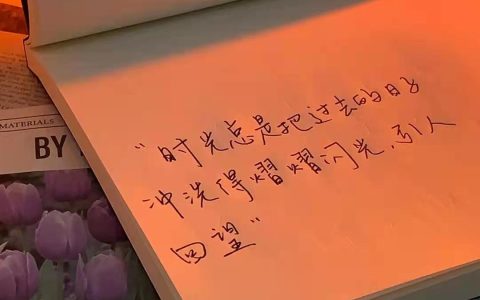 MATERIALS
BY
“时光总是把过去的日子
冲洗得熠熠闪光，引人
回望”